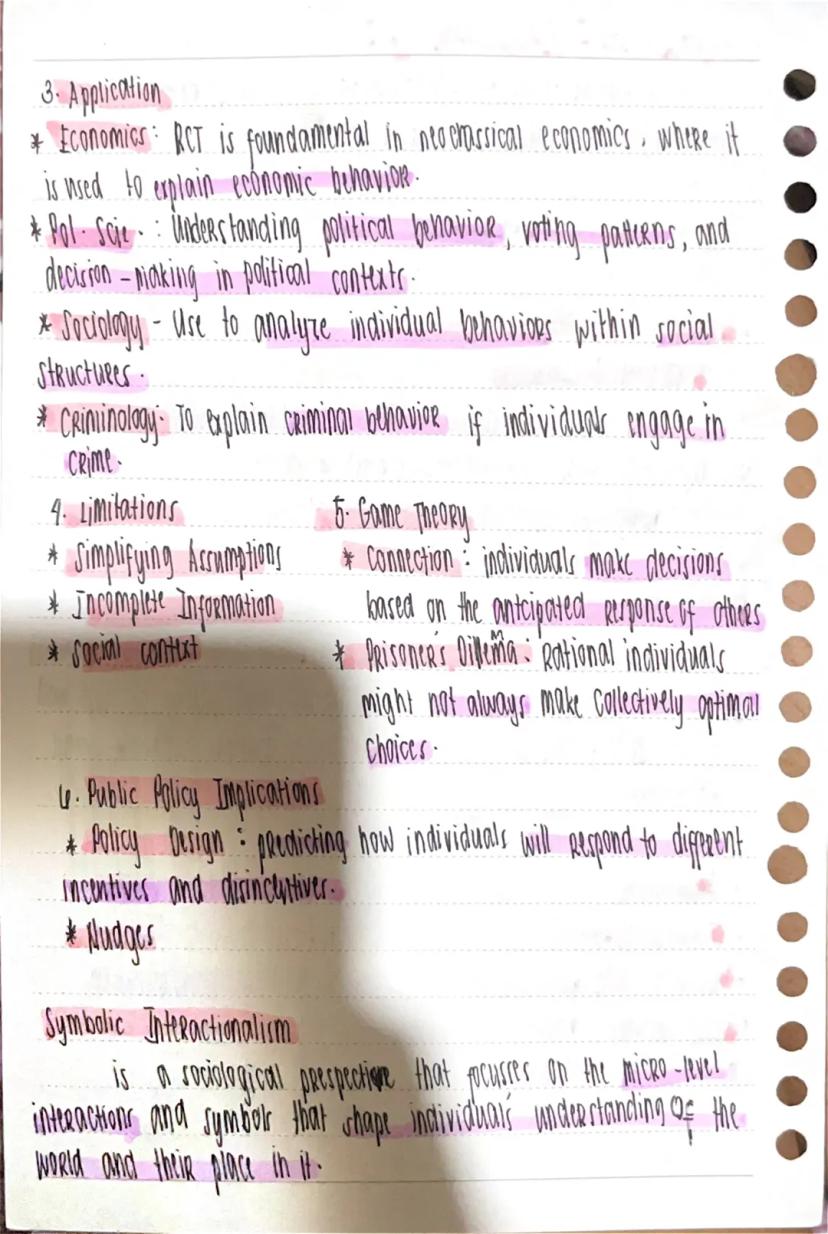 3. Application
* Economics: RCT is foundamental in neoclassical economics, where it
is used to explain economic behavior.
* Pol. Scie. : Understanding political behavior, voting patterns, and
decision-making in political contexts.
* Sociology - Use to analyze individual behaviors within social
structures.
* Criminology- To explain criminal behavior if individuals engage in
crime.
4. Limitations
* Simplifying Assumptions
* Incomplete Information
* Social context
5. Game Theory
* Connection: individuals make decisions
based on the anticipated response of others
* Prisoner's Dilemma: Rational individuals
might not always make collectively optimal
choices.
6. Public Policy Implications
* Policy Design: predicting how individuals will respond to different
incentives and disincentives.
* Nudges
Symbolic Interactionalism
is a sociological prespective that focusses on the micro-level
interactions and symbols that shape individual's understanding OF the
world and their place in it.